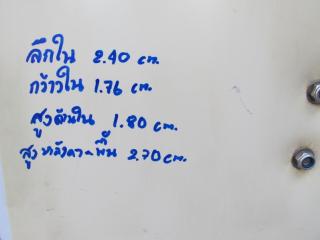 ลึกใน 2.40 cm.
กว้างใน 1.76 cm.
สูงด้านใน 1.80 cm.
สูงหลังคา-พื้น 2.70 cm.